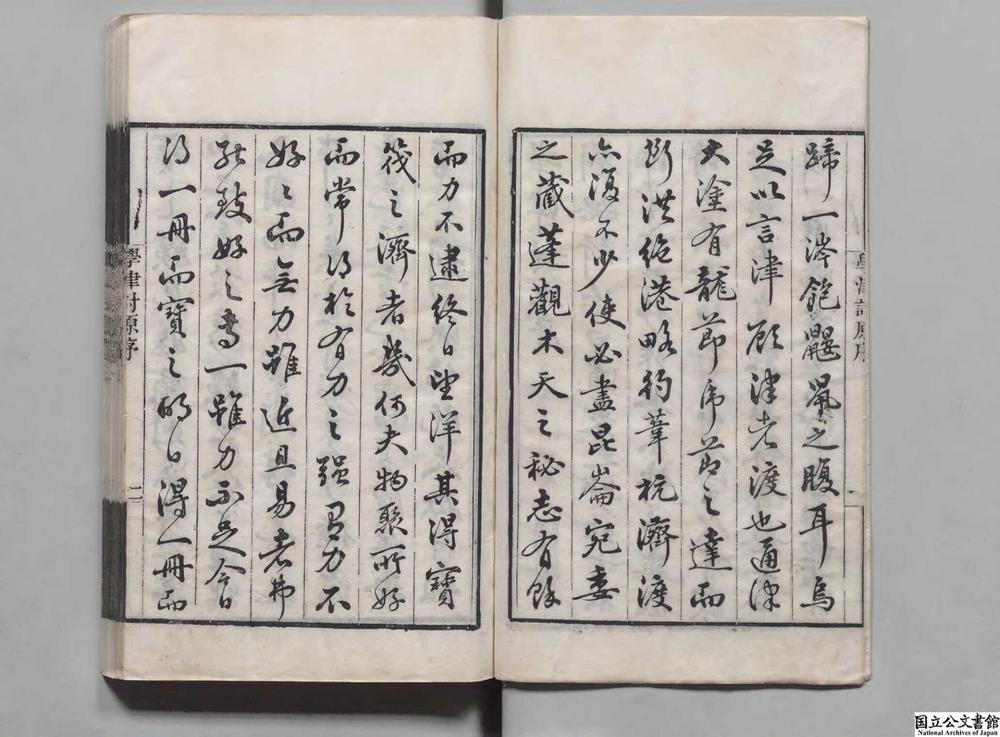 蹄一涔飽鼴鼠之腹耳烏
足以言津顧津者渡也通津
大塗有龍節虎節之達而
斷洪絶港略彴葦杭濟渡
亦復不少使必盡昆崙宛委
之藏蓬觀木天之秘志有餘
學津討原序
而力不逮終日望洋其得寶
筏之濟者幾何夫物聚所好
而常得於有力之强有力不
好好而無力雖近且易老弗
能致好之専一雖力不足今日
得一冊而寶之明日得一冊而
學津討原序
二
国立公文書館
National Archives of Japan